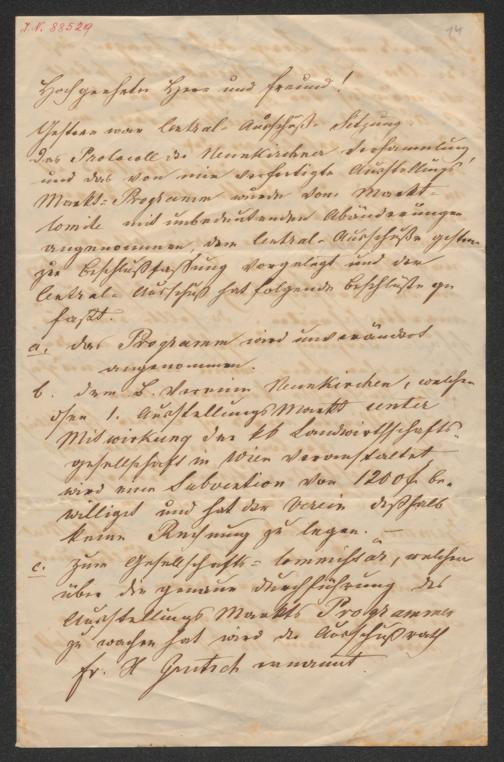 I.N. 88529
14
Hochgeehrter Herr und Freund!
Gestern war Central-Ausschuß-Sitzung
Das Protocoll der Neunkirchner Versammlung
und das von mir verfertigte Ausstellungs
Markt-Programm wurde vom Markt-
Comite mit unbedeutenden Abänderungen
angenommen, dem Central-Ausschuße gestern
zur Beschlußfassung vorgelegt und der
Central-Ausschuß hat folgende Beschlüße ge
faßt.
a, das Programm wird unverändert
angenommen.
b. dem B. Vereine Neunkirchen, welcher
1. Ausstellungs Markt unter
Mitwirkung der kk Landwirthschafts-
gesellschaft in Wien veranstaltet
wird eine Subvention von 1200 be-
williget und hat der Verein deßhalb
keine Rechnung zu legen. —
c. Zum Gesellschafts-Commissär, welcher
über die genaue Durchführung des
Ausstellungs Markts Programmes
zu wachen hat wird der Ausschußrath
Fr. X Gentsch ernannt.